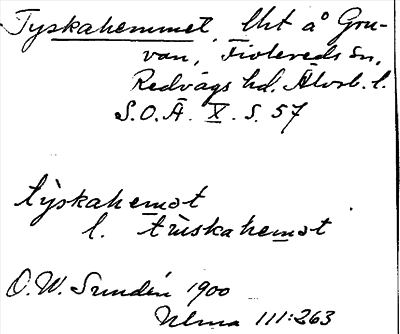 Tyskahemmet, lht å Gru-
van, Fiolereds sn,
Redvägs hd. Älvsb. l.
S.O.Ä. X. s. 57
týskahemət
l. trùskahemət
O. W. Sundén 1900
Ulma 111:263